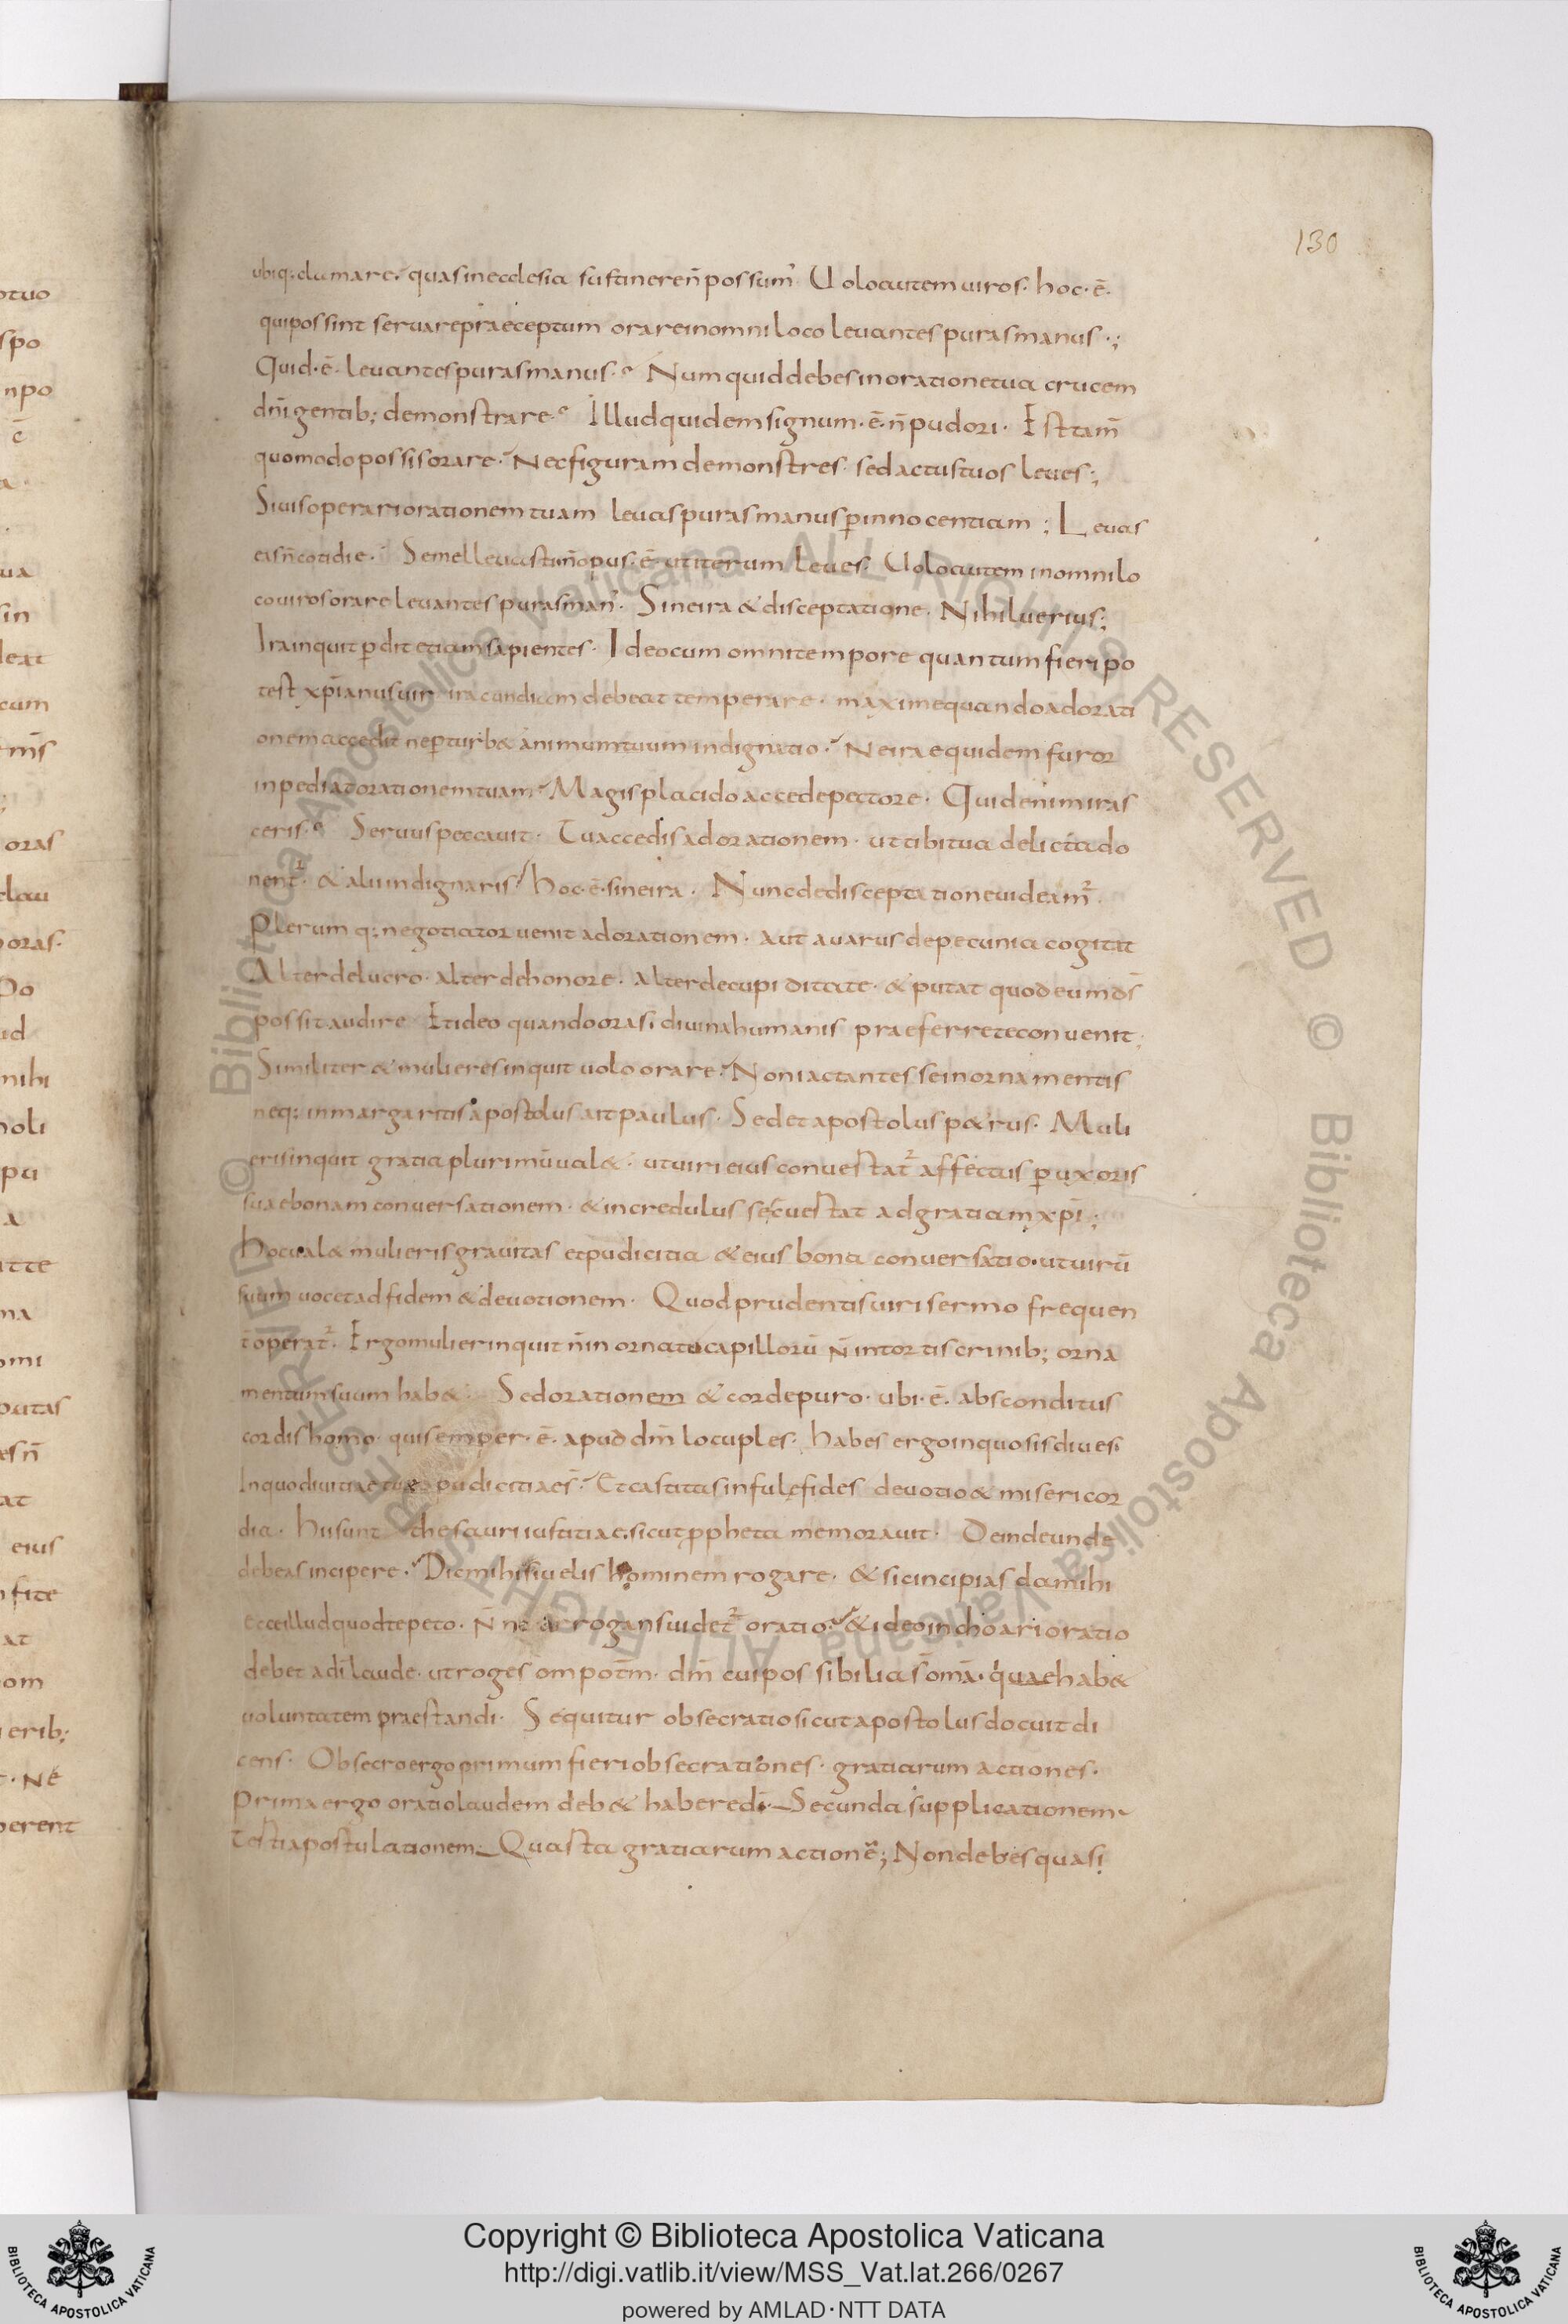 130
ubiq; clamare. quas in ecclesia sustinere n̄ possum' Uolo autem uiros. hoc. ē.
qui possint seruare praeceptum orare in omni loco leuantes puras manus.;
Quid. ē. leuantes puras manus. Numquid debes in oratione tua crucem
dn̄i gentib; demonstrare. Illud quidem signum. ē. n̄ pudori. Est tam̄
quomodo possis orare. Nec figuram demonstres. sed actus tuos leues;
Si uis operari orationem tuam leuas puras manus ꝑ innocentiam; Leuas
eas n̄ cotidie. Semel leuasti n̄ opus. ē. ut iterum leues. Uolo autem in omni lo
co uiros orare leuantes puras man'. Sine ira & disceptatione. Nihil uerius;
Ira inquit ꝑdit etiam sapientes. Ideo cum omni tempore quantum fieri po
test xp̄ianus uir iracundiam debeat temperare. maxime quando ad orati
onem accedit ne ꝑturb& animum tuum indignatio. Ne ira equidem furor
inpediat orationem tuam. Magis placido accede pectore. Quid enim iras
ceris. Seruus peccauit. Tu accedis ad orationem. ut tibi tua delicta do
nent᷑. & alii indignaris. hoc. ē. sine ira. Nunc de disceptatione uideam᷑.
Plerumq; negotiator uenit ad orationem. aut auarus de pecunia cogitat
Alter de lucro. alter de honore. alter de cupiditate. & putat quod eum ds̄
possit audire Et ideo quando oras. diuina humanis praeferre te conuenit.
Similiter & mulieres inquit uolo orare. Non iactantes se in ornamentis
neq; in margaritis apostolus ait paulus. Sed et apostolus p&rus. Muli
eris inquit gratia plurimū ual&. ut uiri eius conuertat᷑ affectus ꝑ uxoris
suae bonam conuersationem. & incredulus se conuertat ad gratiam xp̄i;
hoc ual& mulieris grauitas et pudicitia & eius bona conuersatio. ut uirū
suum uocet ad fidem & deuotionem. Quod prudentis uiri sermo frequen
t̄ operat᷑. Ergo mulier inquit n̄ in ornatu capillorū n̄ in tortis crinib; orna
mentum suum hab&. Sed orationem & corde puro. ubi. ē. absconditus
cordis homo. qui semper. ē. apud dm̄ locuples. habes ergo in quo sis diues.
In quo diuitiae tuae pudicitiae s̄. Et castitas infulę fides deuotio & misericor
dia. Hi sunt thesauri iustitiae. sicut ꝓpheta memorauit. Deinde unde
debeas incipere. Dic mihi si uelis hominem rogare. & sic incipias da mihi
ecce illud quod te peto. N̄ne arrogans uidet᷑ oratio. & ideo inchoari oratio
debet a dī laude. ut roges om̄potm̄. dm̄ cui possibilia s̄ om̄a. quae hab&
uoluntatem praestandi. Sequitur obsecratio sicut apostolus docuit di
cens. Obsecro ergo primum fieri obsecrationes. gratiarum actiones.
Prima ergo oratio laudem deb& habere dī. Secunda supplicationem
Tertia postulationem. Quarta gratiarum actionē; Non debes quasi
otuo
spo
npo
ē
ua
sin
leat
cum
oras
clau
oras.
Do
ud
mihi
noli
pu
a
utte
na
omi
putas
es n̄
at
eius
fite
at
om
erib;
. Ne
perent
© Biblioteca Apostolica Vaticana ALL RIGHTS RESERVED © Biblioteca Apostolica Vaticana ALL RIGHTS RESERVED
Copyright © Biblioteca Apostolica Vaticana
http://digi.vatlib.it/view/MSS_Vat.lat.266/0267
powered by AMLAD·NTT DATA
BIBLIOTECA APOSTOLICA VATICANA
BIBLIOTECA APOSTOLICA VATICANA